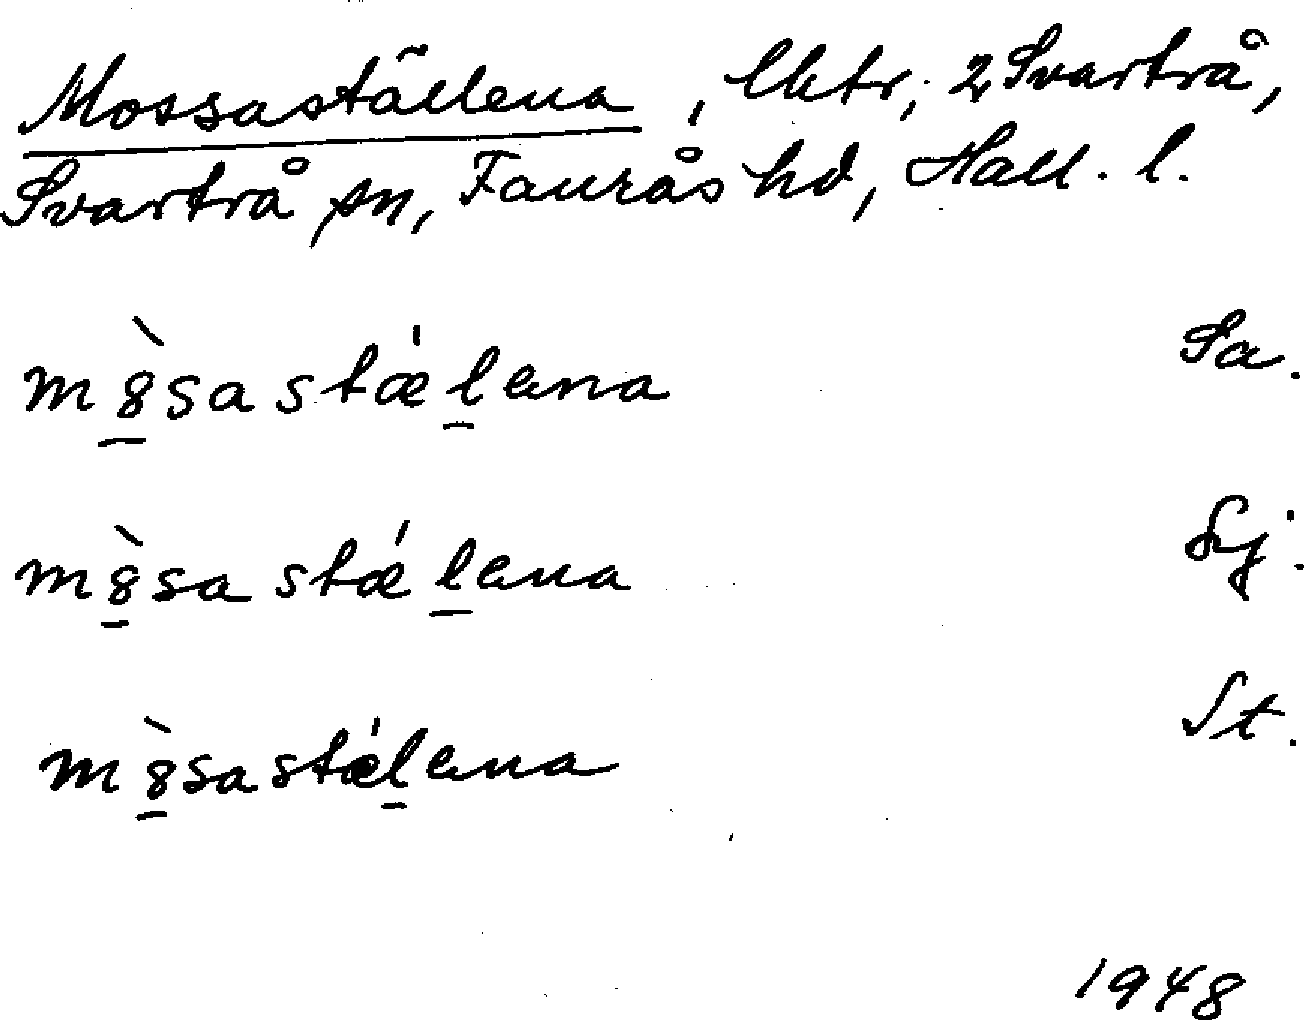 Mossaställena, lktr, 2 Svartrå,
Svartrå sn, Faurås hd, Hall. l.
m8̱̀sastǽḻena Sa.
m8̱̀sastǽḻena Sj.
m8̱̀sastǽḻena St.
1948